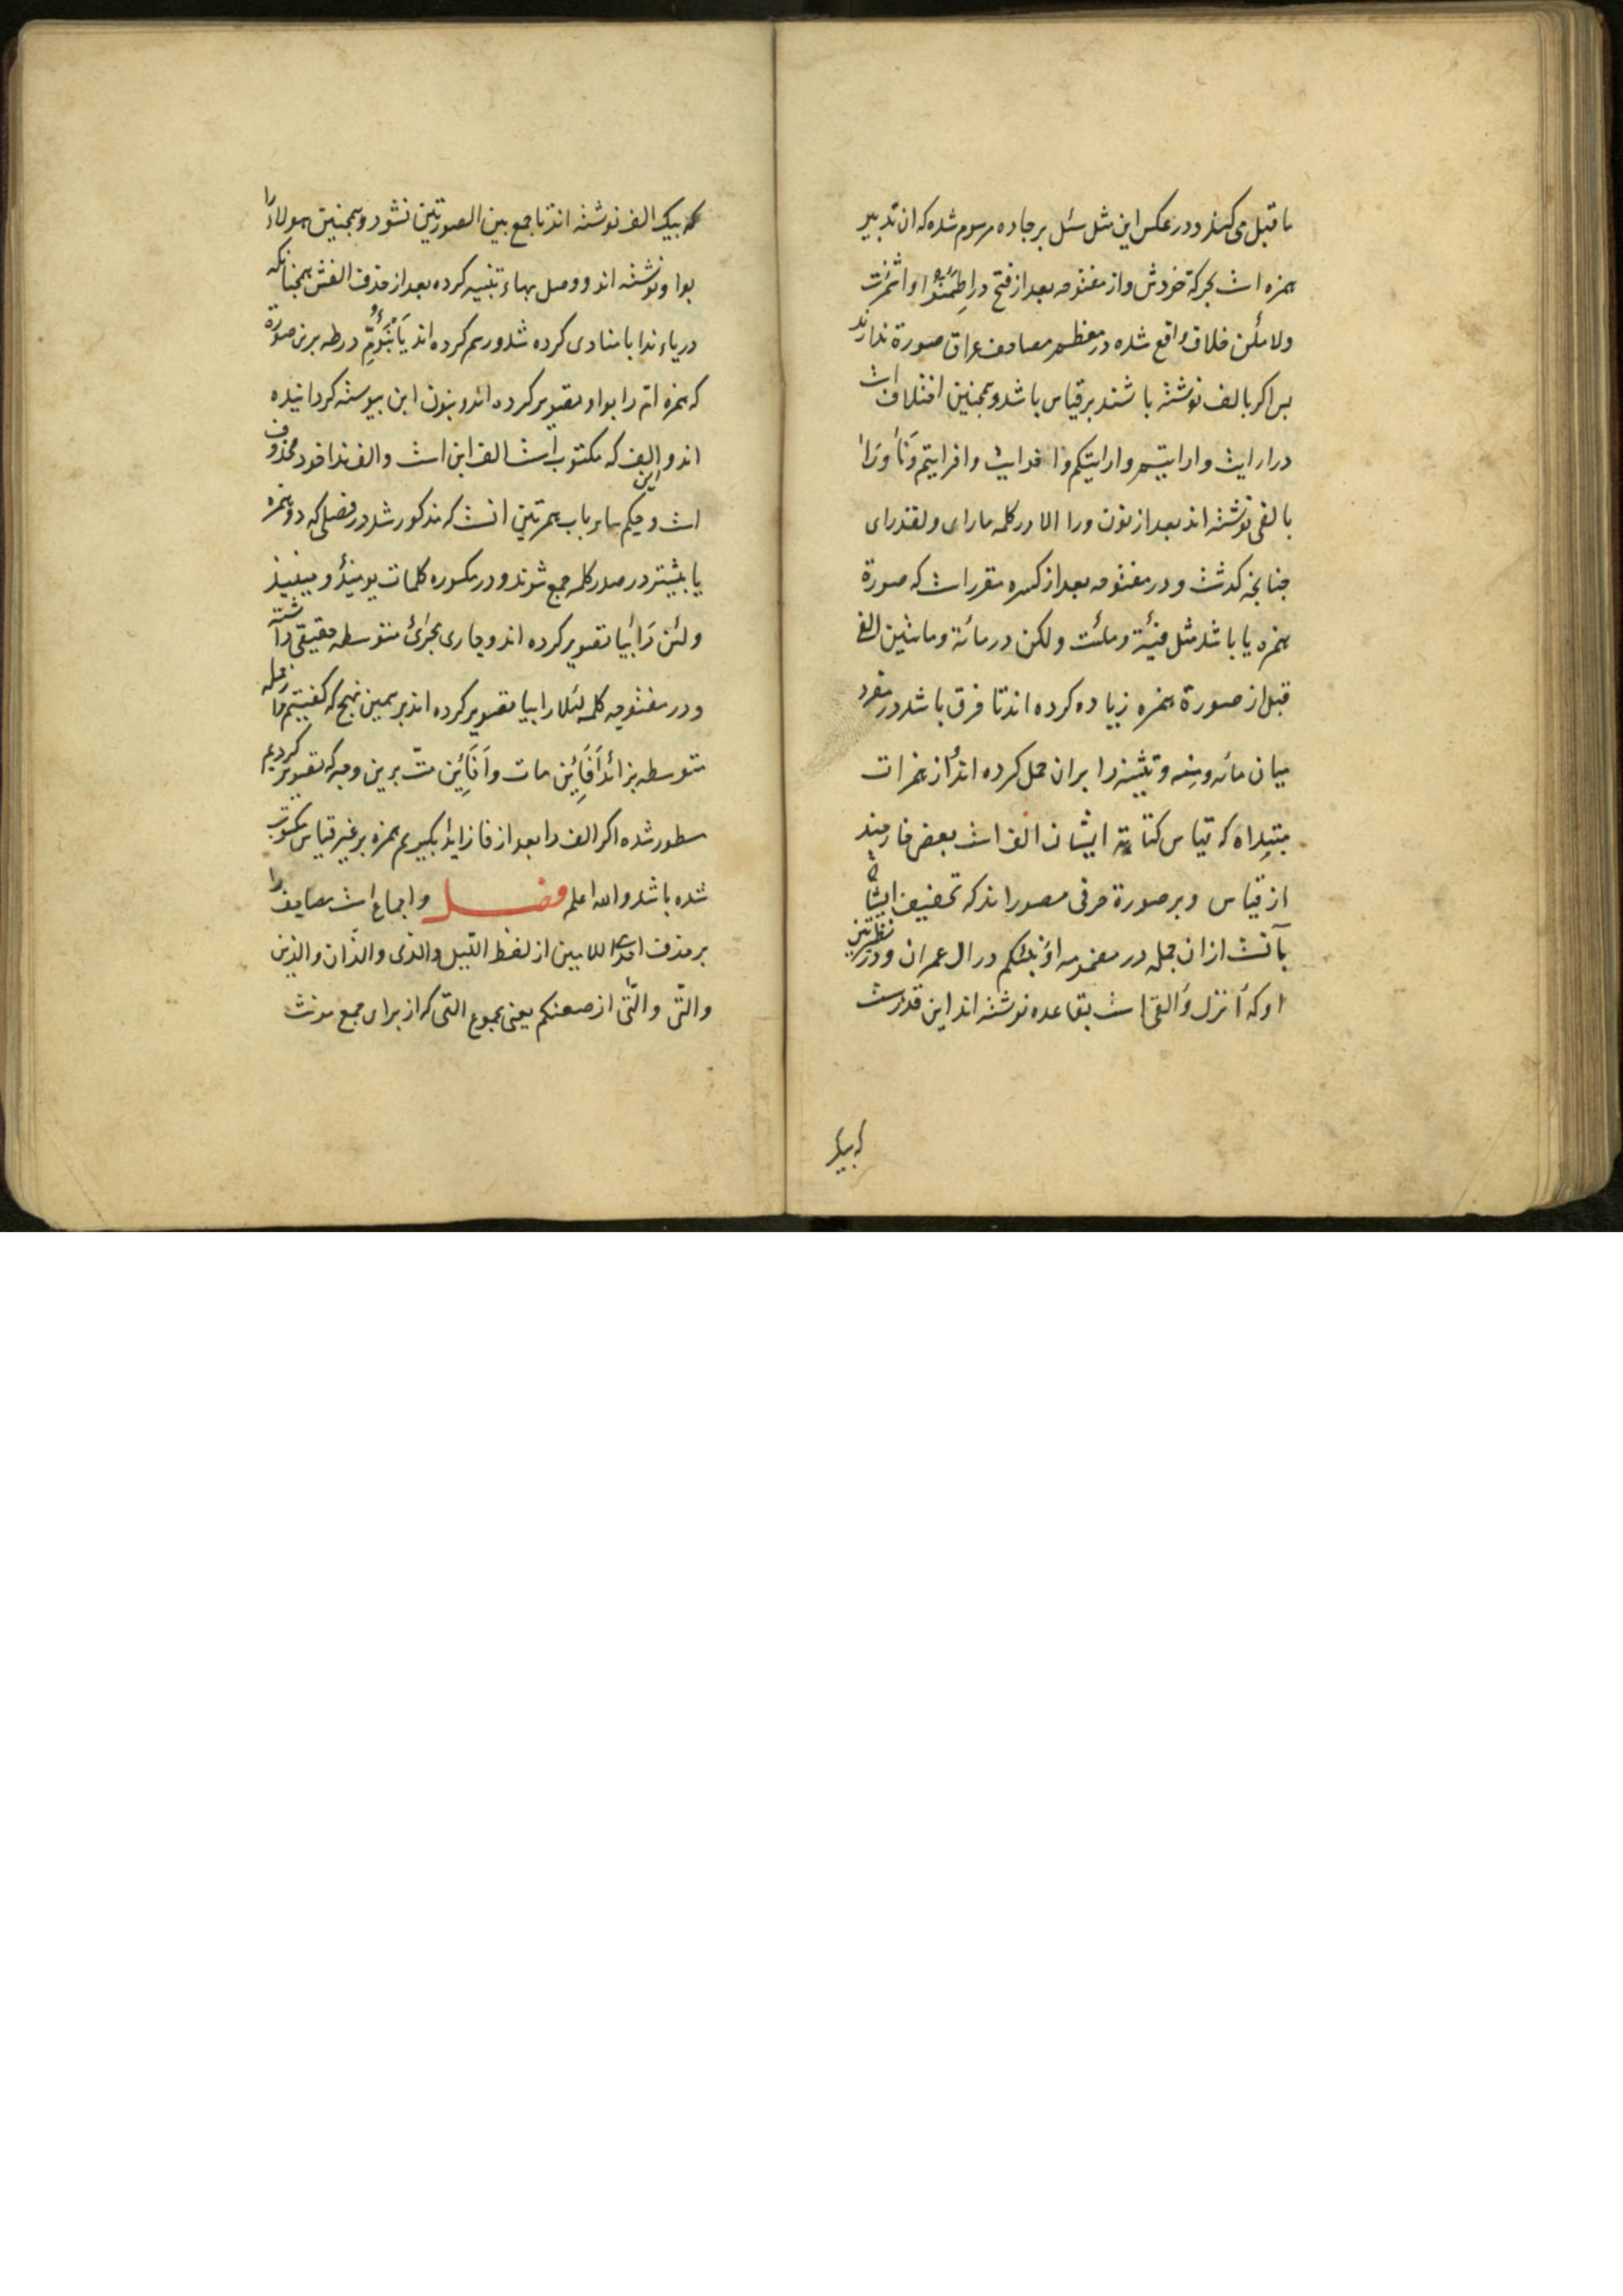 ما قبل می کنند و در عکس این مثل سئل بر جاده مرسوم شده که ان تدبیر
همزه است بحرکة خودش و از مفتوحه بعد از فتح در اطمئنوا و اشمئزت
ولاملئن خلاف واقع شده در معظم مصاحف عراق صورة ندارند
پس اکر بالف نوشته باشند بر قیاس باشد و همچنین اختلاف است
در ارایت و ارایتم و ارایتکم و افرایت و افرایتم و نأا و رأا
بالفی نوشته اند بعد از نون و را الا در کلمه ما رای و لقد رای
چنانچه کذشت و در مفتوحه بعد از کسره مقرر است که صورة
همزه یا باشد مثل فئة و ملئت ولکن در مائة و مائتین الفی
قبل از صورة همزه زیاده کرده اند تا فرق باشد در مفرد
میان مائه و منه و تثنیه را بران حمل کرده اند از همزات
مبتداه که قیاس کتابة ایشان الف است بعض خارجند
از قیاس و بر صورة حرفی مصورند که تخفیف ایشان
بآنست از ان جمله در مضمومه اؤنبئکم در ال عمران و در نظیرتین
او که أانزل و أالقی است بقاعده نوشته اند این قدر هست
که بیک
که بیک الف نوشته اند تا جمع بین الصورتین نشود و همچنین هولاء را
بواو نوشته اند و وصل بهاء تنبیه کرده بعد از حذف الفش همچنانکه
در یاء ندا با منادی کرده شد و رسم کرده اند یابنؤم در طه برین صورة
که همزه ام را بواو تصویر کرده اند و بنون ابن پیوسته کردانیده
اند و الف که مکتوب است الف ابن است و الف ندا خود محذوف
است و حکم سایر باب همزتین انست که مذکور شد در فصلی که دو همزه
یا بیشتر در صدر کلمه جمع شوند و در مکسوره کلمات یومئذ و حینئذ
و لئن را بیا تصویر کرده اند و جاری مجرای متوسطه حقیقی داشته
و در مفتوحه کلمه لئلا را بیا تصویر کرده اند بر همین نهج که کفتیم از جمله
متوسطه بزائد أفائن مات و أفائن مت برین وجه که تصویر کردیم
مسطور شده اکر الف را بعد از فا زاید بکیریم همزه بر غیر قیاس مکتوب
شده باشد والله اعلم فصل و اجماع است مصاحف را
بر حذف احدی اللامین از لفظ الیل والذی والذان والذین
والتی والتی ارضعنکم یعنی مجموع التی که از برای جمع مونث